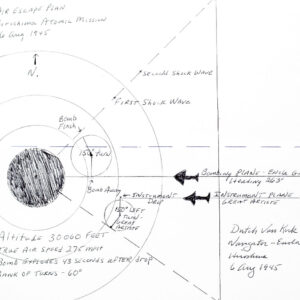 AIR ESCAPE PLAN
HIROSHIMA ATOMIC MISSION
6 Aug 1945
N
SECOND SHOCK WAVE
BOMB
FLASH
FIRST SHOCK WAVE
TURN
BOMBING PLANE - ENOLA G
HEADING 263°
BOMB AWAY
INSTRUMENT
DROP
INSTRUMENT PLANE
GREAT ARTISTE
150° LEFT
TURN
GREAT
ARTISTE
ALTITUDE 30000 FEET
TRUE AIR SPEED 275 MPH
BOMB EXPLODES 43 SECONDS AFTER DROP
BANK OF TURNS - 60°
Dutch Van Kirk
Navigator - Enola
Hiroshima
6 Aug 1945